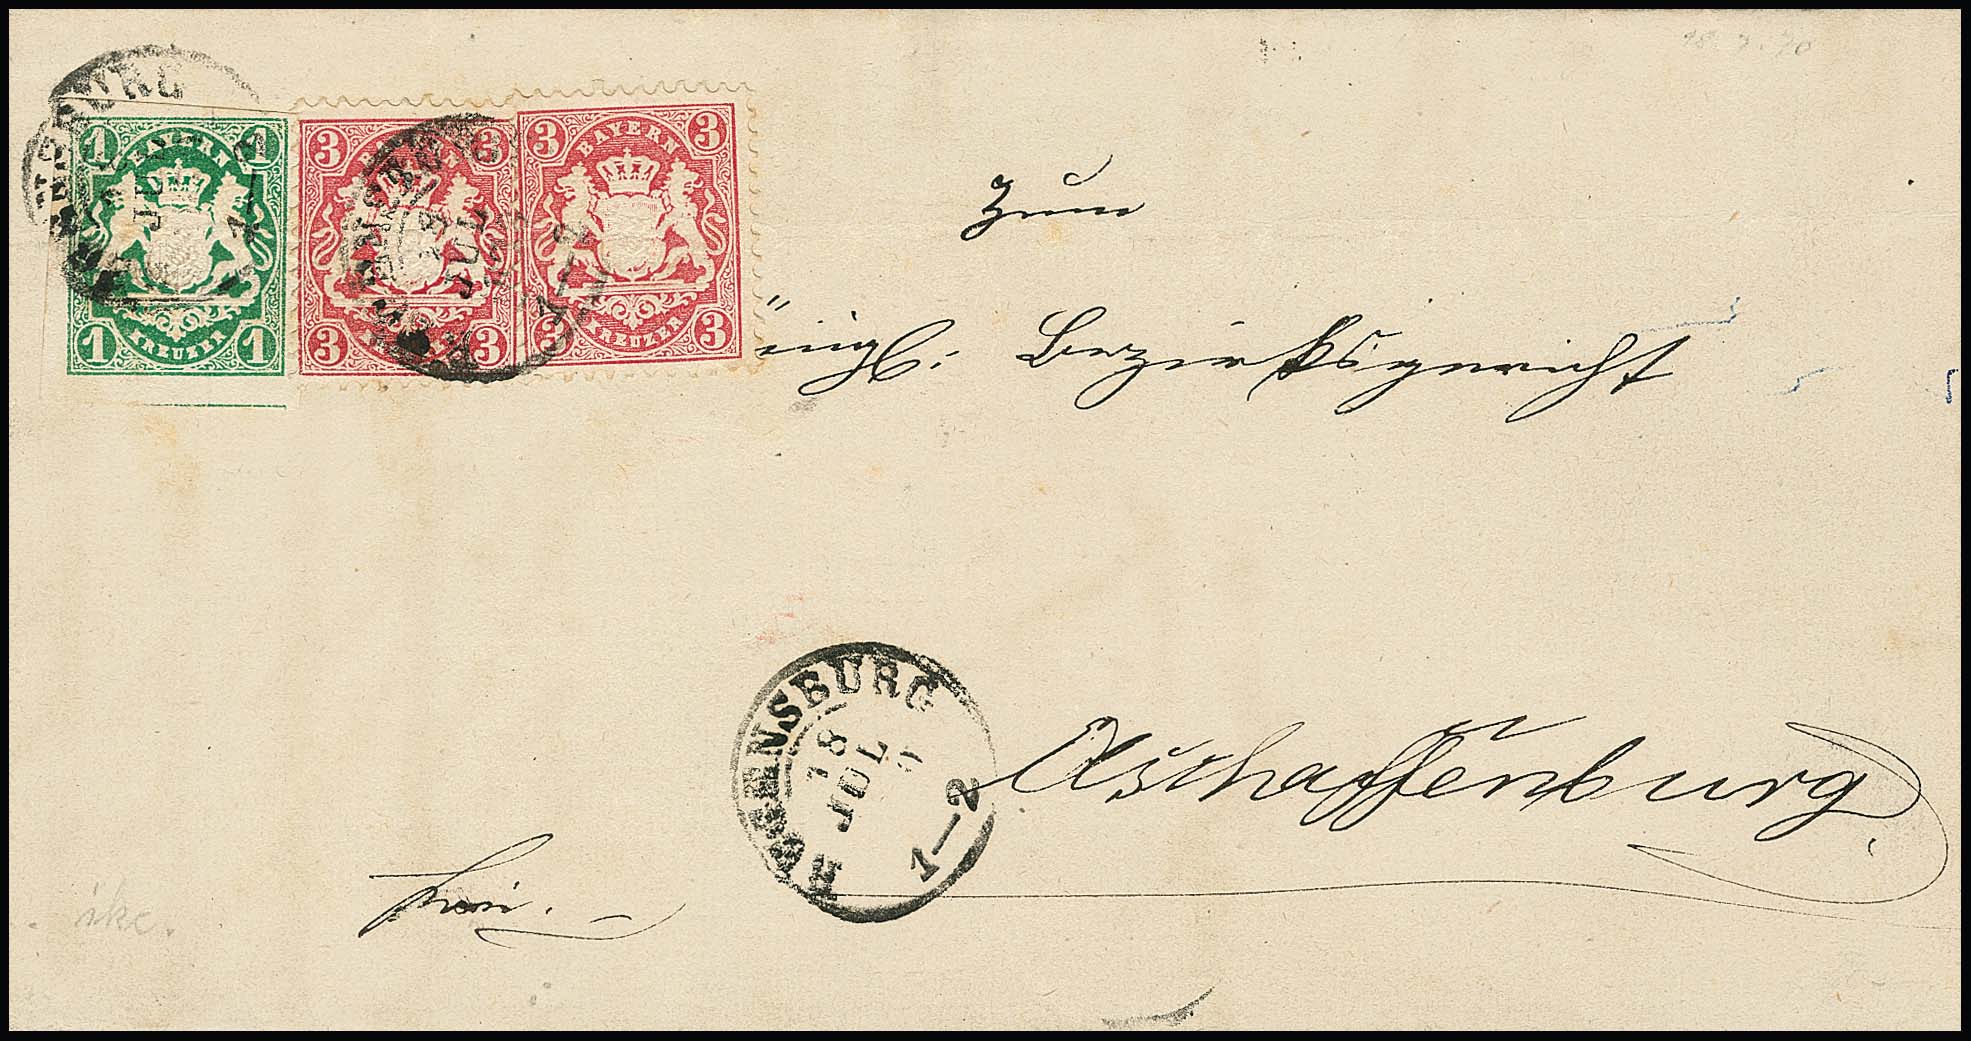 18. 7. 70
1 BAYERN 1
1 KREUZER 1
3 BAYERN 3
3 KREUZER 3
3 BAYERN 3
3 KREUZER 3
REGENSBURG
18
JUL
zum
Bezirksgericht
REGENSBURG
18
JUL
1—2
Aschaffenburg.